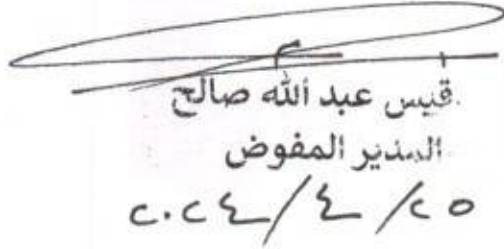 قيس عبد الله صالح
المدير المفوض
٢٠٢٤/٤/٢٥